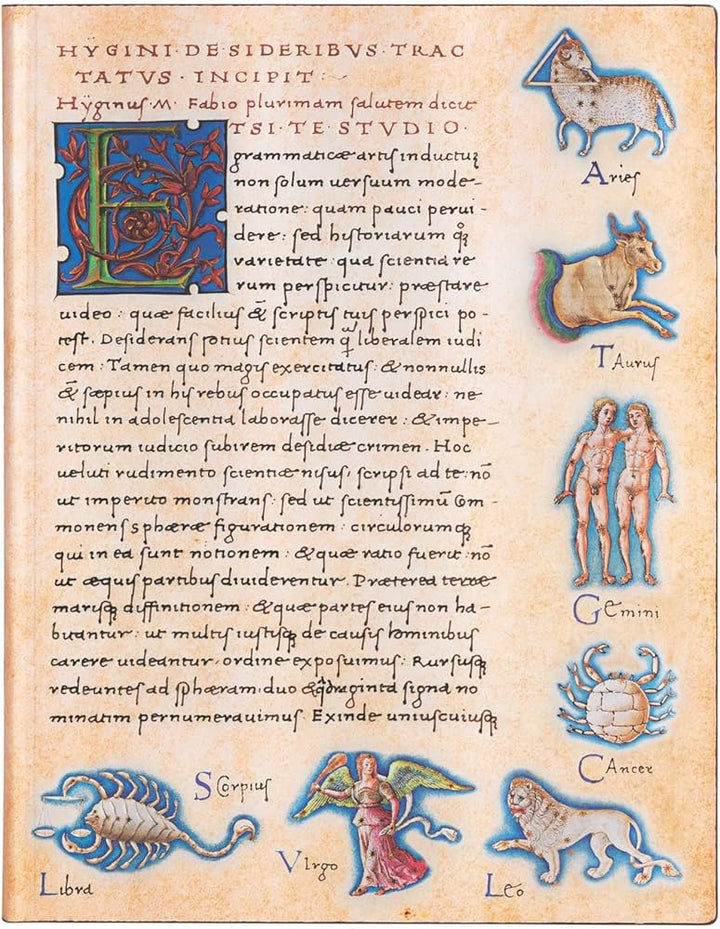 HYGINI·DE·SIDERIBVS·TRAC
TATVS·INCIPIT:~
Hÿginus·M· Fabio plurimam salutem dicit
ETSI·TE·STVDIO·
grammaticæ artis inductuꝫ
non solum uersuum mode-
ratione: quam pauci perui-
dere: sed historiarum qꝫ
varietate: qua scientia re
rum perspicitur: præstare
uideo: quæ facilius & scriptis tuis perspici po-
test. Desiderans potius scientem ꝙ̃ liberalem iudi
cem: Tamen quo magis exercitatus: & nonnullis
& sæpius in his rebus occupatus esse uidear: ne
nihil in adolescentia laborasse dicerer: & impe-
ritorum iudicio subirem desidiæ crimen. Hoc
ueluti rudimento scientiæ nisus, scripsi ad te: nō
ut imperito monstrans: sed ut scientissimū Com-
monens sphæræ figurationem: circulorumqꝫ
qui in ea sunt notionem: & quæ ratio fuerit: nō
ut æquis partibus diuiderentur. Præterea terræ
marisqꝫ diffinitionem: & quæ partes eius non ha-
bitantur: ut multis iustisqꝫ de causis hominibus
carere uideantur, ordine exposuimus: Rursusqꝫ
redeuntes ad sphæram, duo & quadraginta signa no
minatim pernumerauimus. Exinde uniuscuiusqꝫ
Aries
TAurus
GEmini
CAncer
SCorpius
VIrgo
LEo
Libra